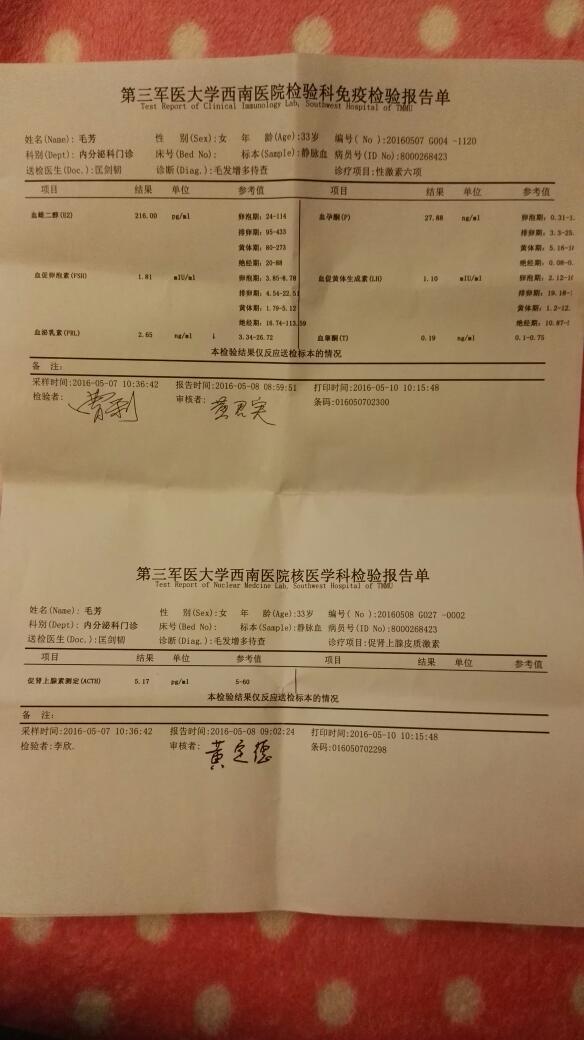 第三军医大学西南医院检验科免疫检验报告单
Test Report of Clinical Immunology Lab, Southwest Hospital of TMMU
姓名(Name): 毛芳 性 别(Sex):女 年 龄(Age):33岁 编号( No ):20160507 G004 -1120
科别(Dept): 内分泌科门诊 床号(Bed No): 标本(Sample):静脉血 病员号(ID No):8000268423
送检医生(Doc.):匡剑韧 诊断(Diag.):毛发增多待查 诊疗项目:性激素六项
项目 结果 单位 参考值 项目 结果 单位 参考值
血雌二醇(E2) 216.00 pg/ml 卵泡期: 24-114 血孕酮(P) 27.88 ng/ml 卵泡期: 0.31-1.
排卵期: 95-433 排卵期: 3.3-25.
黄体期: 80-273 黄体期: 5.16-18
绝经期: 20-88 绝经期: 0.08-0.
血促卵泡素(FSH) 1.81 mIU/ml 卵泡期: 3.85-8.78 血促黄体生成素(LH) 1.10 mIU/ml 卵泡期: 2.12-10
排卵期: 4.54-22.51 排卵期: 19.18-
黄体期: 1.79-5.12 黄体期: 1.2-12.
绝经期: 16.74-113.59 绝经期: 10.87-5
血泌乳素(PRL) 2.65 ng/ml ↓ 3.34-26.72 血睾酮(T) 0.19 ng/ml 0.1-0.75
本检验结果仅反应送检标本的情况
备 注:
采样时间:2016-05-07 10:36:42 报告时间:2016-05-08 08:59:51 打印时间:2016-05-10 10:15:48
检验者: 审核者: 条码:016050702300
第三军医大学西南医院核医学科检验报告单
Test Report of Nuclear Medcine Lab, Southwest Hospital of TMMU
姓名(Name): 毛芳 性 别(Sex):女 年 龄(Age):33岁 编号( No ):20160508 G027 -0002
科别(Dept): 内分泌科门诊 床号(Bed No): 标本(Sample):静脉血 病员号(ID No):8000268423
送检医生(Doc.):匡剑韧 诊断(Diag.):毛发增多待查 诊疗项目:促肾上腺皮质激素
项目 结果 单位 参考值 项目 结果 单位 参考值
促肾上腺素测定(ACTH) 5.17 pg/ml 5-60
本检验结果仅反应送检标本的情况
备 注:
采样时间:2016-05-07 10:36:42 报告时间:2016-05-08 09:02:24 打印时间:2016-05-10 10:15:48
检验者:李欣. 审核者: 黄定德 条码:016050702298